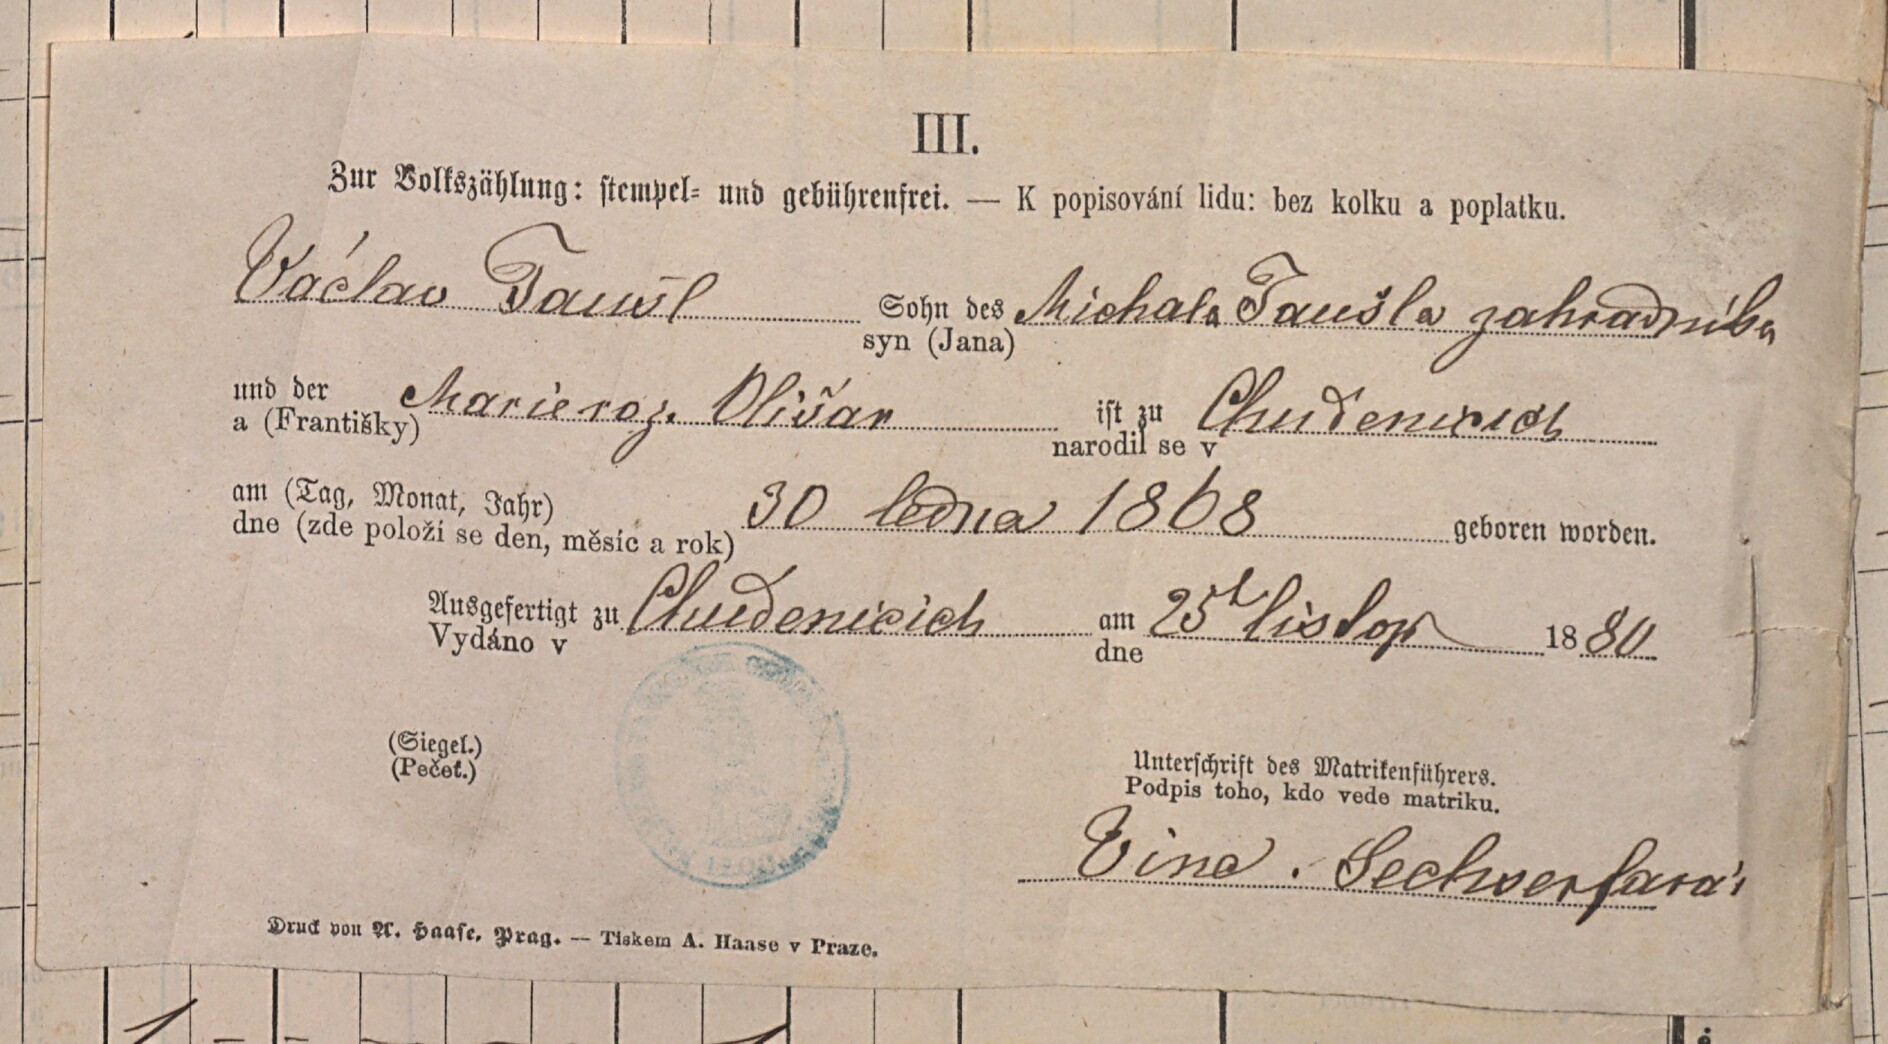 III.
Zur Volkszählung: stempel- und gebührenfrei. — K popisování lidu: bez kolku a poplatku.
Václav Taušl Sohn des Michala Taušla zahradníka
syn (Jana)
und der Marie roz. Olišar ist zu Chuděnicích
a (Františky) narodil se v
am (Tag, Monat, Jahr) 30 ledna 1868 geboren worden.
dne (zde položí se den, měsíc a rok)
Ausgefertigt zu Chudenicích am 25t listop 1880
Vydáno v dne
(Siegel.)
(Pečeť.)
Unterschrift des Matrikenführers.
Podpis toho, kdo vede matriku.
Vinc. Sechser farář
Druck von A. Haase, Prag. — Tiskem A. Haase v Praze.